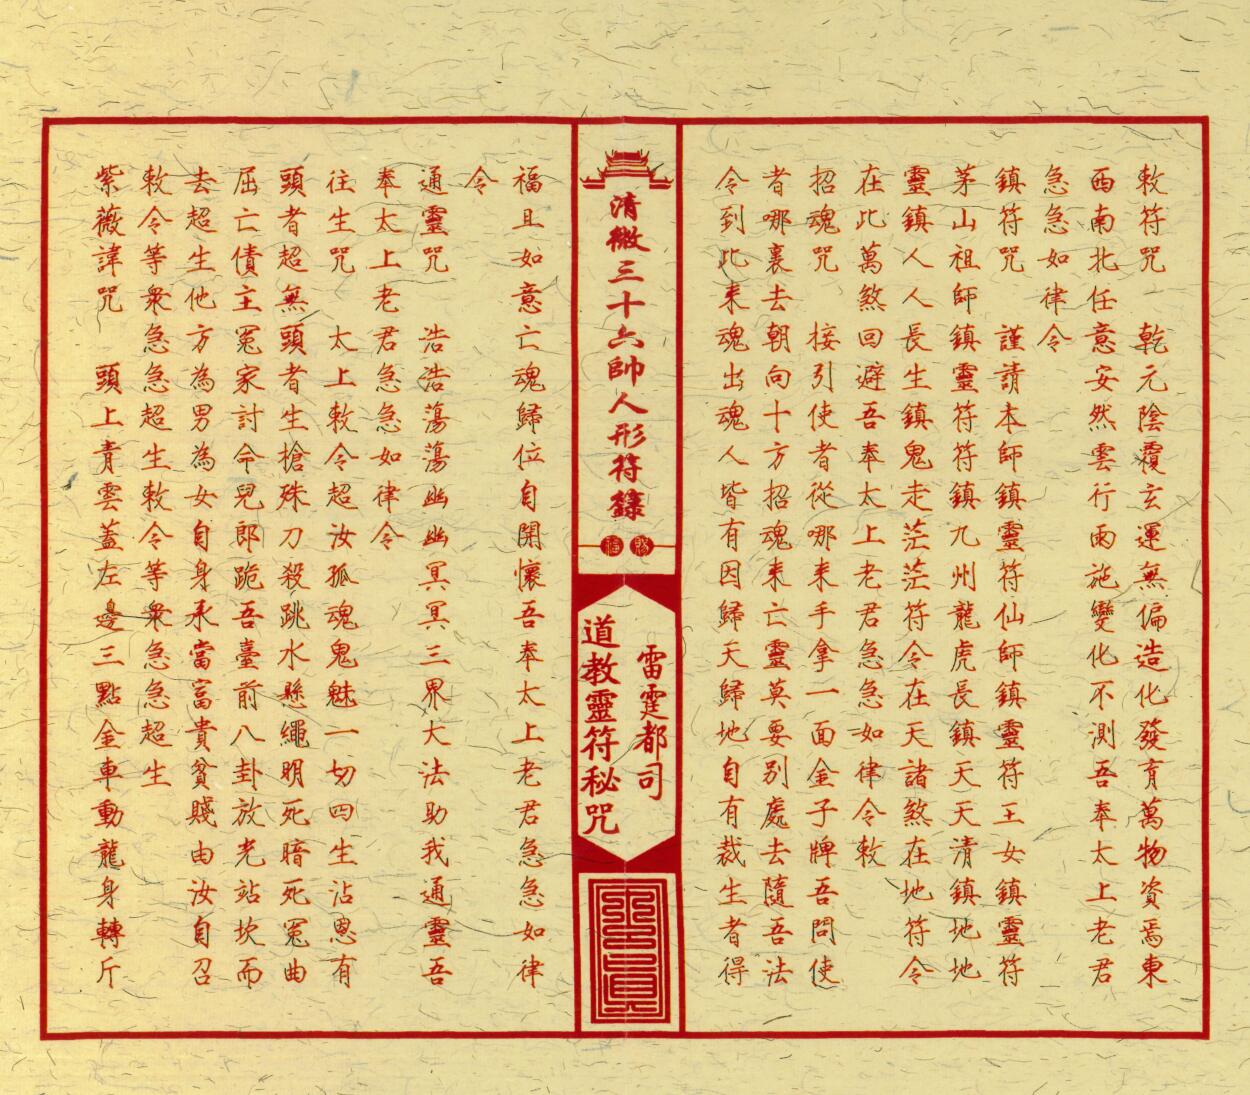 敕符咒　乾元陰覆玄運無偏造化發育萬物資焉東
西南北任意安然雲行雨施變化不測吾奉太上老君
急急如律令
鎮符咒　謹請本師鎮靈符仙師鎮靈符王女鎮靈符
茅山祖師鎮靈符符鎮九州龍虎長鎮天天清鎮地地
靈鎮人人長生鎮鬼鬼走茫茫符令在天諸煞在地符令
在此萬煞回避吾奉太上老君急急如律令敕
招魂咒　接引使者從哪来手拿一面金子牌吾問使
者哪裏去朝向十方招魂来亡靈莫要別處去隨吾法
令到此来魂出魂人皆有因歸天歸地自有裁生者得
清微三十六帥人形符籙
雷霆都司
道教靈符秘咒
福且如意亡魂歸位自開懷吾奉太上老君急急如律
令
通靈咒　浩浩蕩蕩幽幽冥冥三界大法助我通靈吾
奉太上老君急急如律令
往生咒　太上敕令超汝孤魂鬼魅一切四生沾恩有
頭者超無頭者生槍殊刀殺跳水懸繩明死暗死冤曲
屈亡債主冤家討命兒郎跪吾臺前八卦放光站坎而
去超生他方為男為女自身承當富貴貧賤由汝自召
敕令等衆急急超生敕令等衆急急超生
紫薇諱咒　頭上青雲蓋左邊三點金車動龍身轉斤